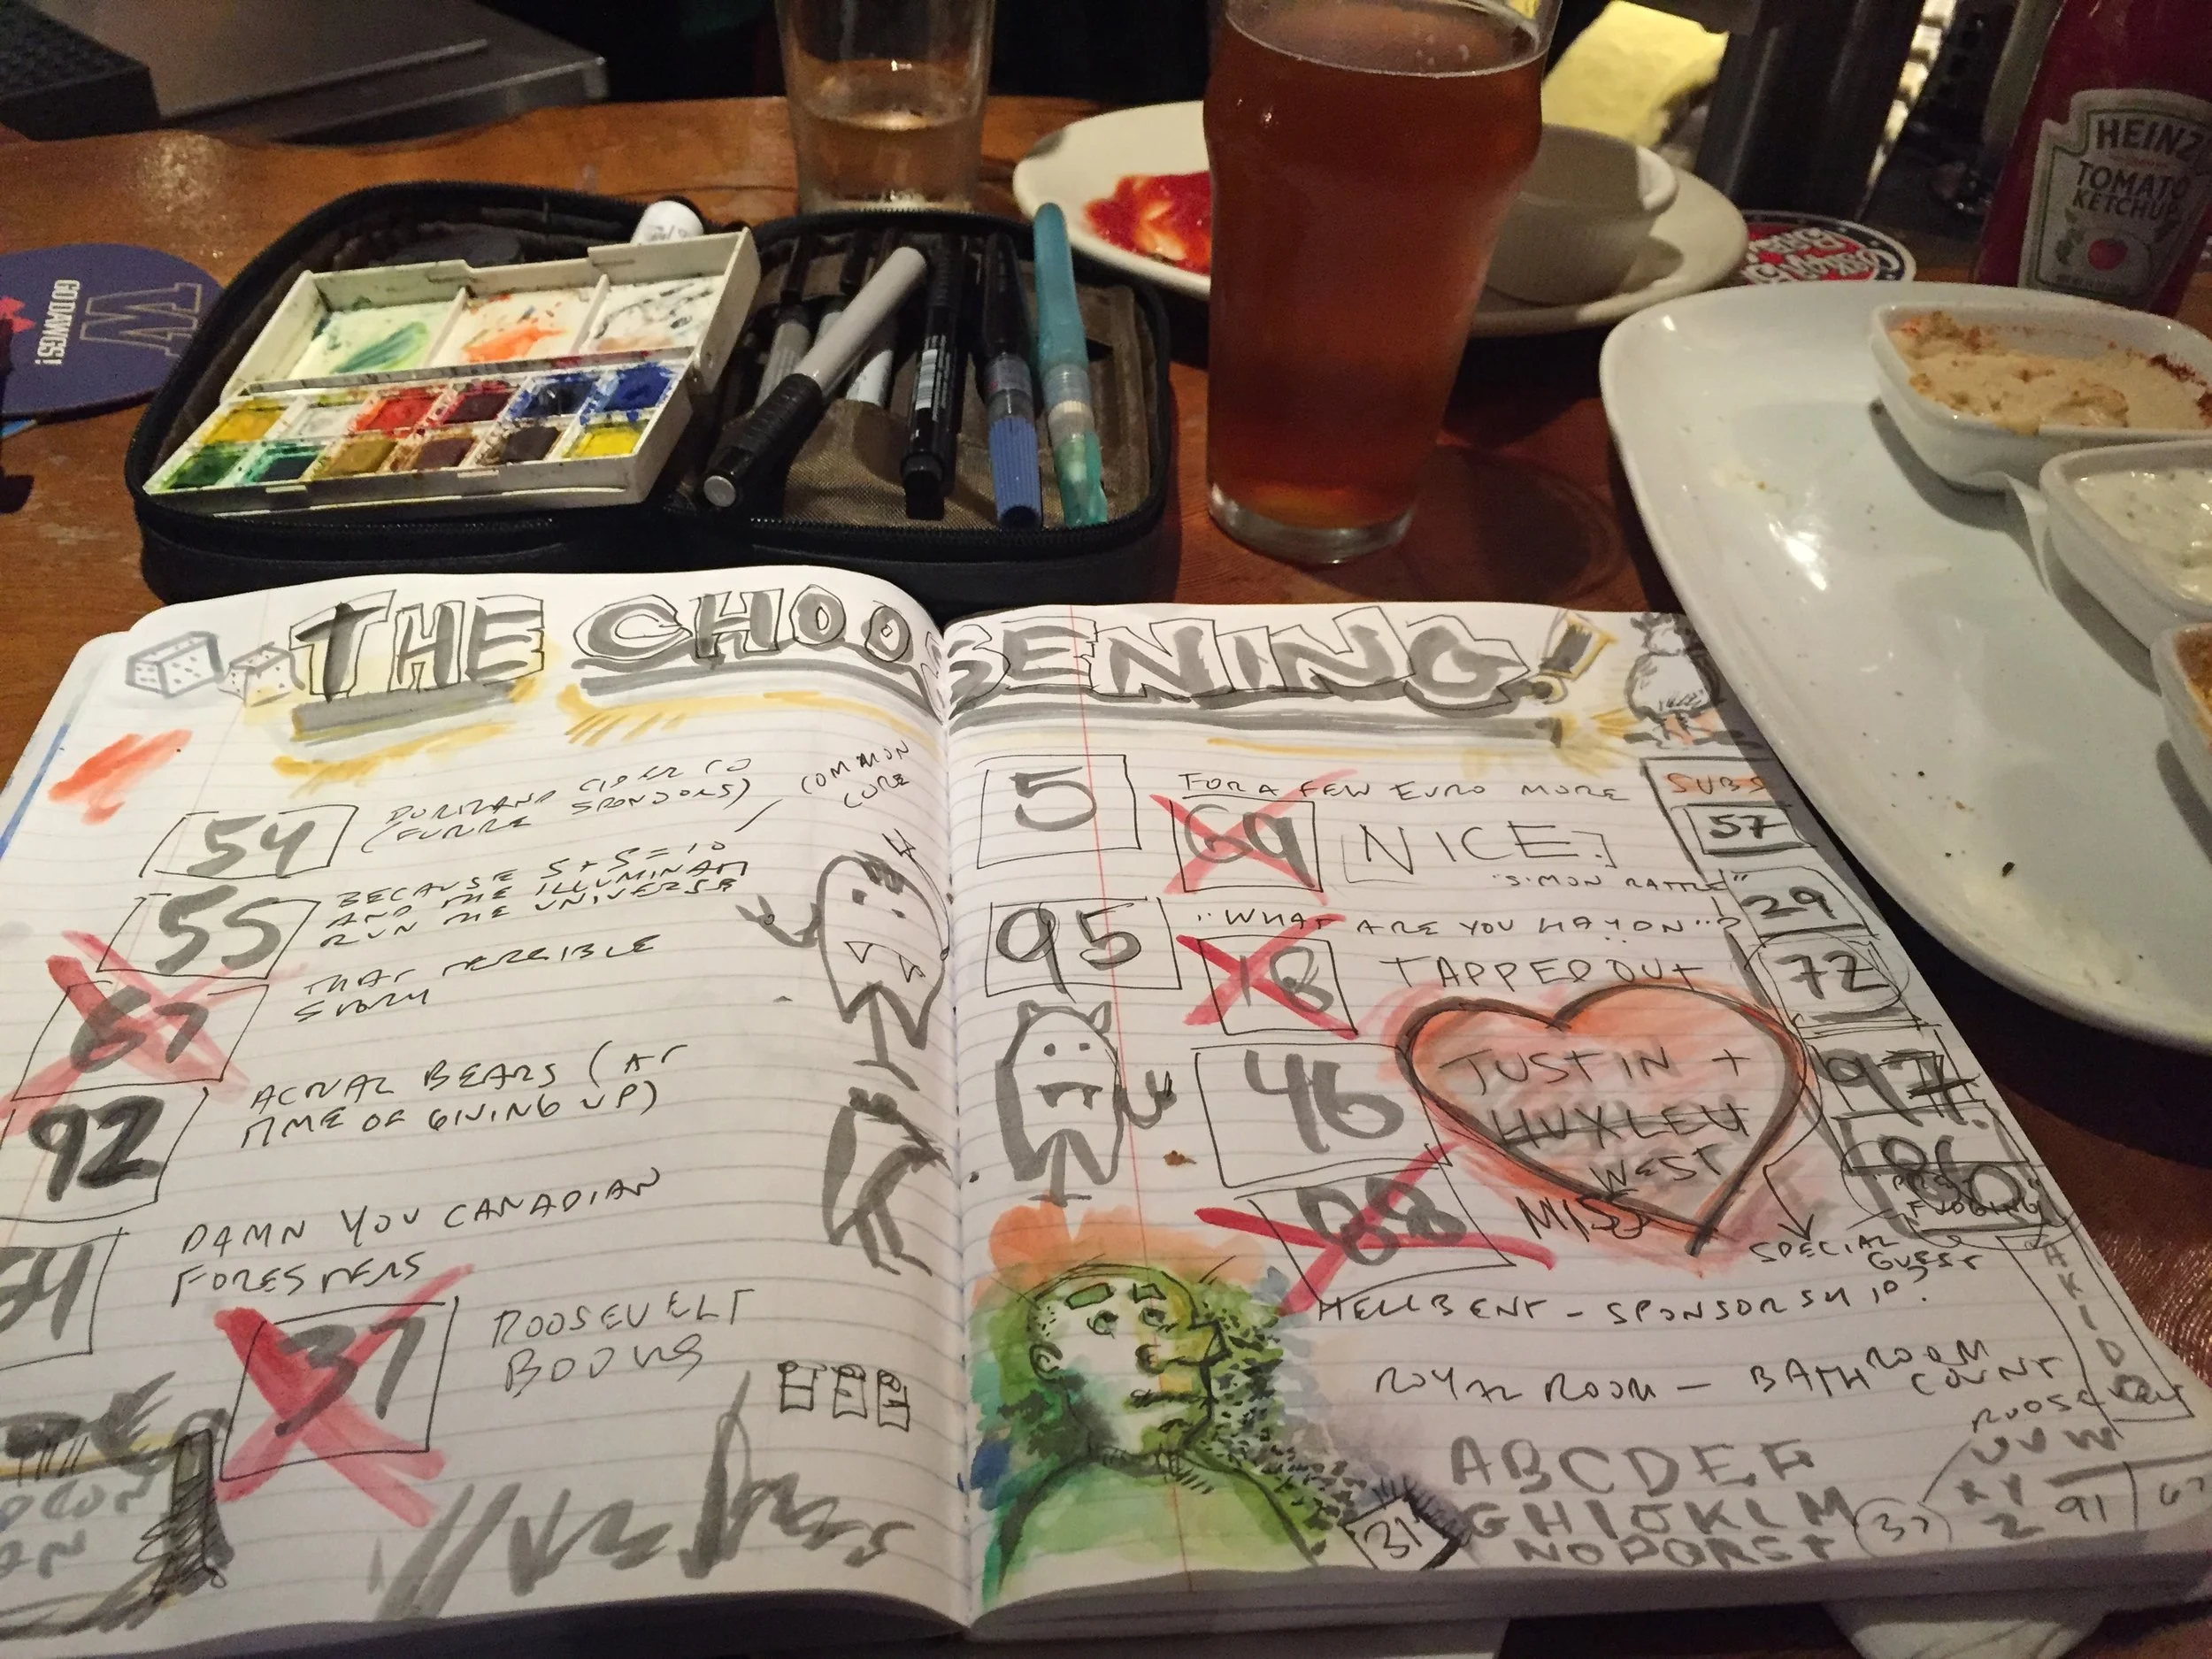 HEINZ
TOMATO
KETCHUP
W
GO DAWGS!
THE CHOOSENING
54
(FUTURE SPONSORS)
COMMON
CORE
55
BECAUSE 5+5=10
AND THE ILLUMINATI
RUN THE UNIVERSE
67
THAT TERRIBLE
STORY
92
ACTUAL BEARS (AT
TIME OF GIVING UP)
DAMN YOU CANADIAN
FORESTERS
37
ROOSEVELT
5
FOR A FEW EURO MORE
69
NICE.
"SIMON RATTLE"
95
"WHAT ARE YOU HAYDN"?
18
TAPPED OUT
46
JUSTIN +
HUXLEY
WEST
88
MISS
SPECIAL
GUEST
HELLBENT - SPONSORSHIP?
ROYAL ROOM - BATHROOM
COUNT
ABCDEF
GHIJKLM
NOPQRST
UVW
XY
Z
31
37
91
67
SUBS
57
29
72
97